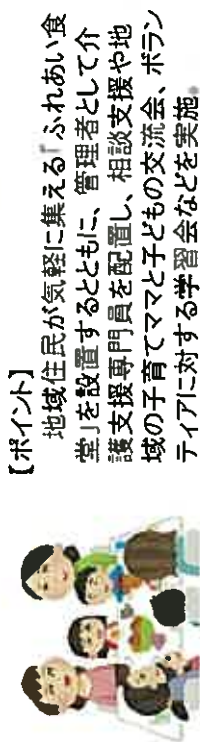 【ポイント】
地域住民が気軽に集える「ふれあい食
堂」を設置するとともに、管理者として介
護支援専門員を配置し、相談支援や地
域の子育てママと子どもの交流会、ボラン
ティアに対する学習会などを実施。